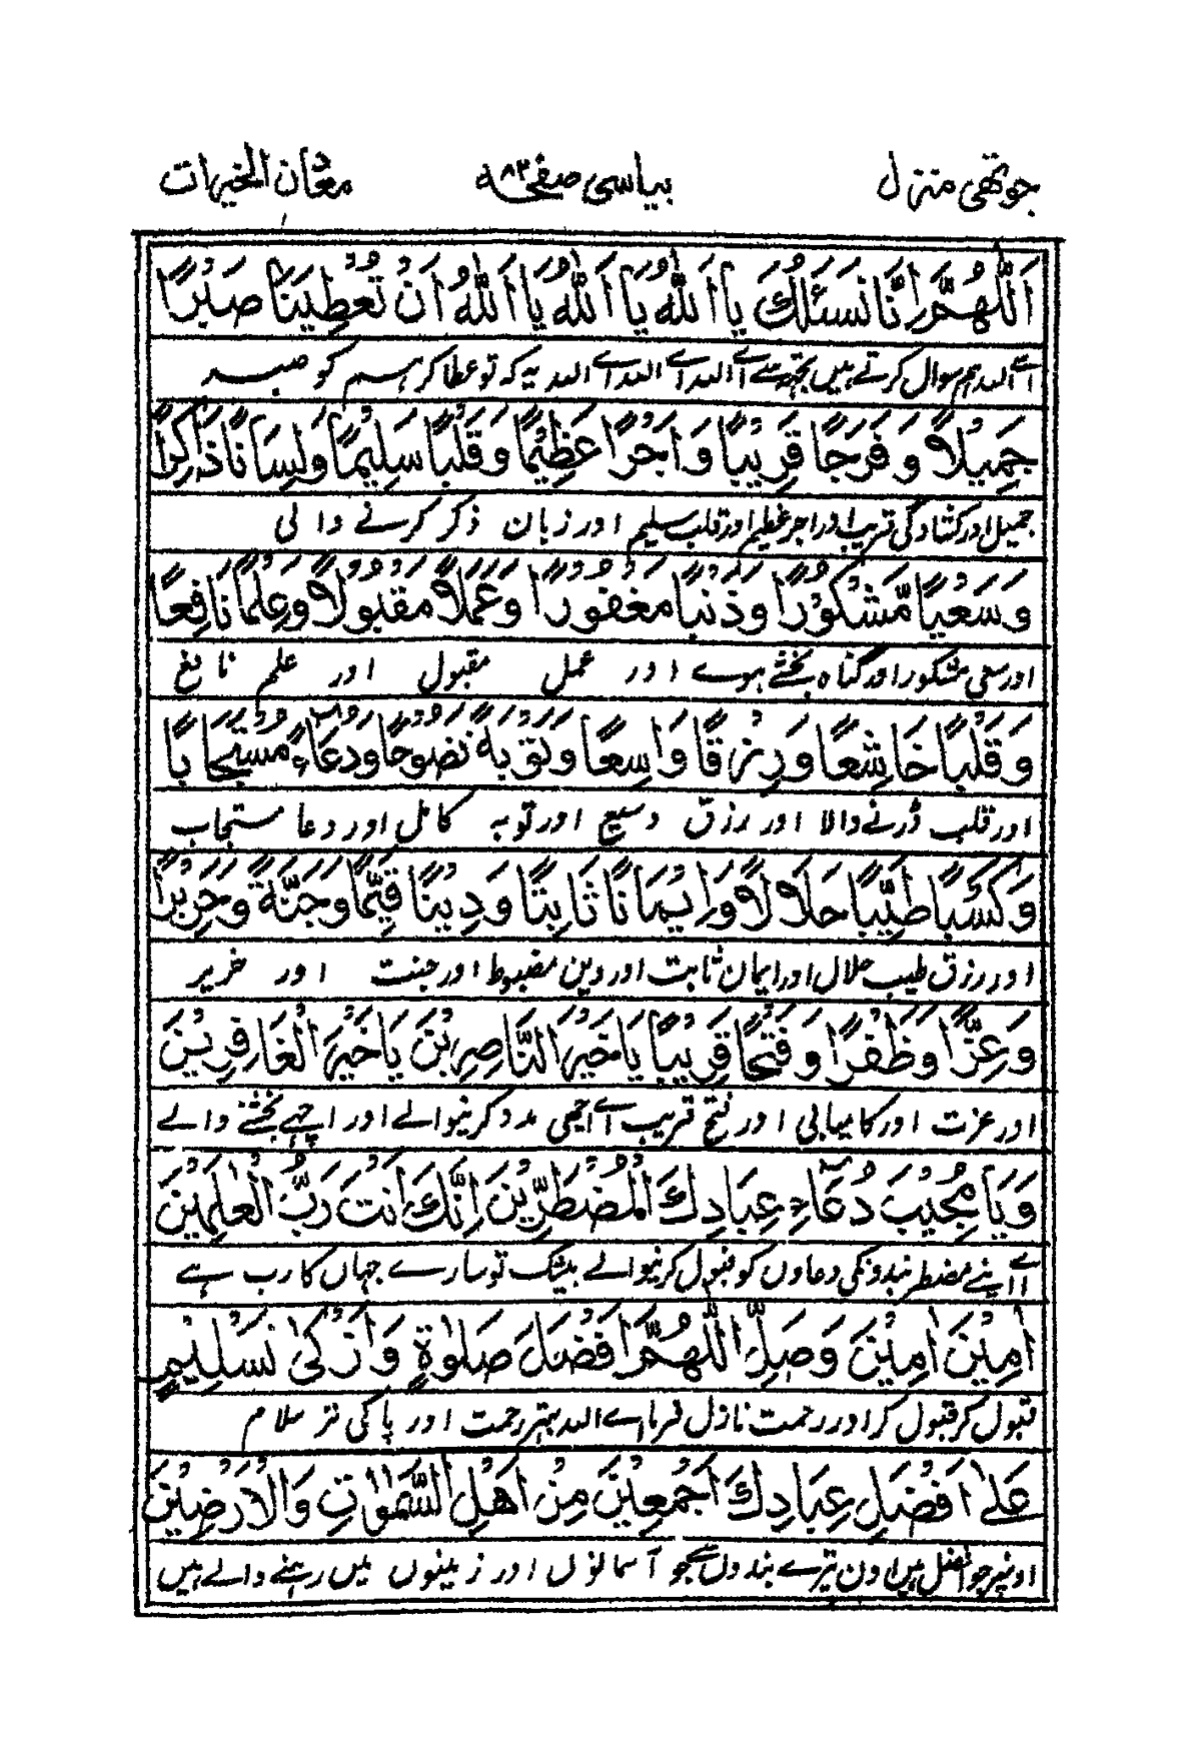 چوتھی منزل بیاسی صفحہ ۸۲ معدن الخیرات
اَللّٰهُمَّ اِنَّا نَسْئَلُكَ يَا اَللّٰهُ يَا اَللّٰهُ يَا اَللّٰهُ اَنْ تُعْطِيَنَا صَبْرًا
اے اللہ ہم سوال کرتے ہیں تجھ سے اے اللہ اے اللہ اے اللہ یہ کہ تو عطا کر ہم کو صبر
جَمِيْلًا وَفَرَجًا قَرِيْبًا وَاَجْرًا عَظِيْمًا وَقَلْبًا سَلِيْمًا وَلِسَانًا ذَاكِرًا
جمیل اور کشادگی قریب اور اجر عظیم اور قلب سلیم اور زبان ذکر کرنے والی
وَسَعْيًا مَّشْكُوْرًا وَذَنْبًا مَغْفُوْرًا وَعَمَلًا مَقْبُوْلًا وَعِلْمًا نَافِعًا
اور سعی مشکور اور گناہ بخشے ہوے اور عمل مقبول اور علم نافع
وَقَلْبًا خَاشِعًا وَرِزْقًا وَاسِعًا وَتَوْبَةً نَصُوْحًا وَدُعَاءً مُسْتَجَابًا
اور قلب ڈرنے والا اور رزق وسیع اور توبہ کامل اور دعا مستجاب
وَكَسْبًا طَيِّبًا حَلَالًا وَاِيْمَانًا ثَابِتًا وَدِيْنًا قَيِّمًا وَجَنَّةً وَحَرِيْرًا
اور رزق طیب حلال اور ایمان ثابت اور دین مضبوط اور جنت اور حریر
وَعِزًّا وَظَفْرًا وَفَتْحًا قَرِيْبًا يَا خَيْرَ النَّاصِرِيْنَ يَا خَيْرَ الْغَافِرِيْنَ
اور عزت اور کامیابی اور فتح قریب اے اچھی مدد کرنیوالے اور اچھے بخشنے والے
وَيَا مُجِيْبَ دُعَاءِ عِبَادِكَ الْمُضْطَرِّيْنَ اِنَّكَ اَنْتَ رَبُّ الْعٰلَمِيْنَ
اے اپنے مضطر بندونکی دعاوں کو قبول کرنیوالے بیشک تو سارے جہاں کا رب ہے
اٰمِيْنَ اٰمِيْنَ وَصَلِّ اللّٰهُمَّ اَفْضَلَ صَلٰوةٍ وَاَزْكٰى تَسْلِيْمٍ
قبول کر قبول کر اور رحمت نازل فرما اے اللہ بہتر رحمت اور پاکی تر سلام
عَلٰى اَفْضَلِ عِبَادِكَ اَجْمَعِيْنَ مِنْ اَهْلِ السَّمٰوٰتِ وَالْاَرَضِيْنَ
اونپر جو افضل ہیں اون تیرے بندوں سے جو آسمانوں اور زمینوں میں رہنے والے ہیں